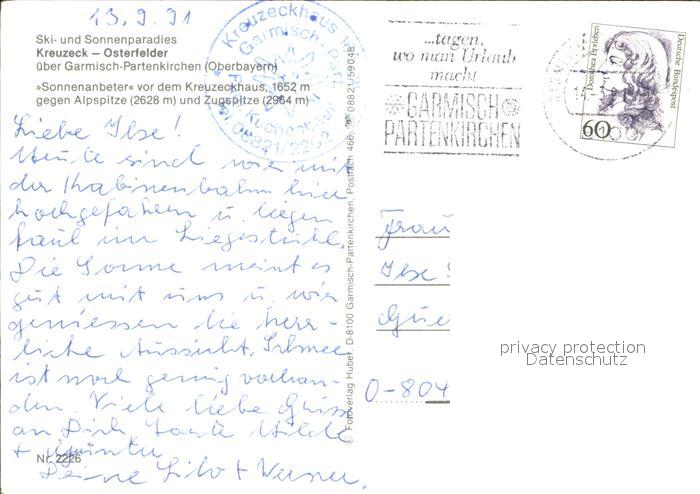 13.9.91
Ski- und Sonnenparadies
Kreuzeck – Osterfelder
über Garmisch-Partenkirchen (Oberbayern)
»Sonnenanbeter« vor dem Kreuzeckhaus, 1652 m
gegen Alpspitze (2628 m) und Zugspitze (2964 m)
Kreuzeckhaus
Garmisch
08821/22
Liebe Ilse!
Heute sind wir mit
der Kabinenbahn hier
hochgefahren u. liegen
faul im Liegestuhl.
Die Sonne meint es
gut mit uns u. wir
geniessen die herr-
liche Aussicht. Schnee
ist noch genug vorhan-
den. Viele liebe Grüsse
an Dich Tante Hilde
+ Günter
Nr. 2226
Deine Lilo + Werner.
© Fotoverlag Huber, D-8100 Garmisch-Partenkirchen, Postfach 466, 08821/59048
...tagen,
wo man Urlaub
macht
GARMISCH
PARTENKIRCHEN
Dorothea Erxleben
Deutsche Bundespost
60
Frau
Ilse
Gue
O-804
privacy protection
Datenschutz